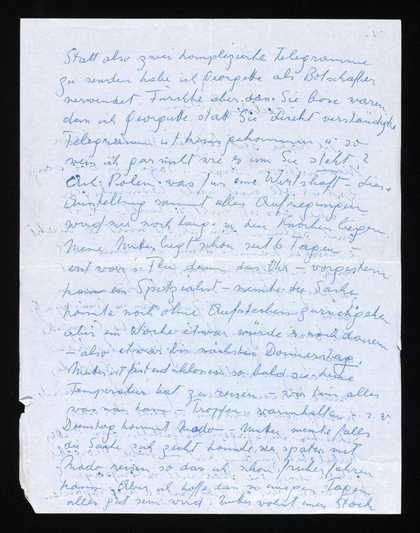 Statt also zwei komplizierte Telegramme
zu senden habe ich Georgette als Botschafter
verwendet Fürchte aber dass Sie böse waren
denn ich Georgette statt Sie direkt verständigte
Telegramm ist keins gekommen u so
weiss ich gar nicht wie es um Sie steht?
Ach Polen was für eine Wirtschaft diese
Ausstellung samt allen Aufregungen
wird mir noch lange in den Knochen liegen
Meine Mutter liegt schon seit 6 Tagen –
erst war's Flu dann das Ohr – vorgestern
kam ein Spezialist – meinte die Sache
könnte noch ohne Aufstechen zurückgehen
aber ein Woche etwa würde es noch dauern
– also etwa bis nächsten Donnerstag.
Mutter ist fest entschlossen so bald sie keine
Temperatur hat zu reisen – wir tun alles
was man kann – Tropfen, warmhalten –
Dienstag kommt Mado – Mutter meinte falls
die Sache gut geht könnte sie später mit
Mado reisen so dass ich schon früher fahren
kann. Aber ich hoffe dass in einigen Tagen
alles gut sein wird. Mutter wohnt einen Stock